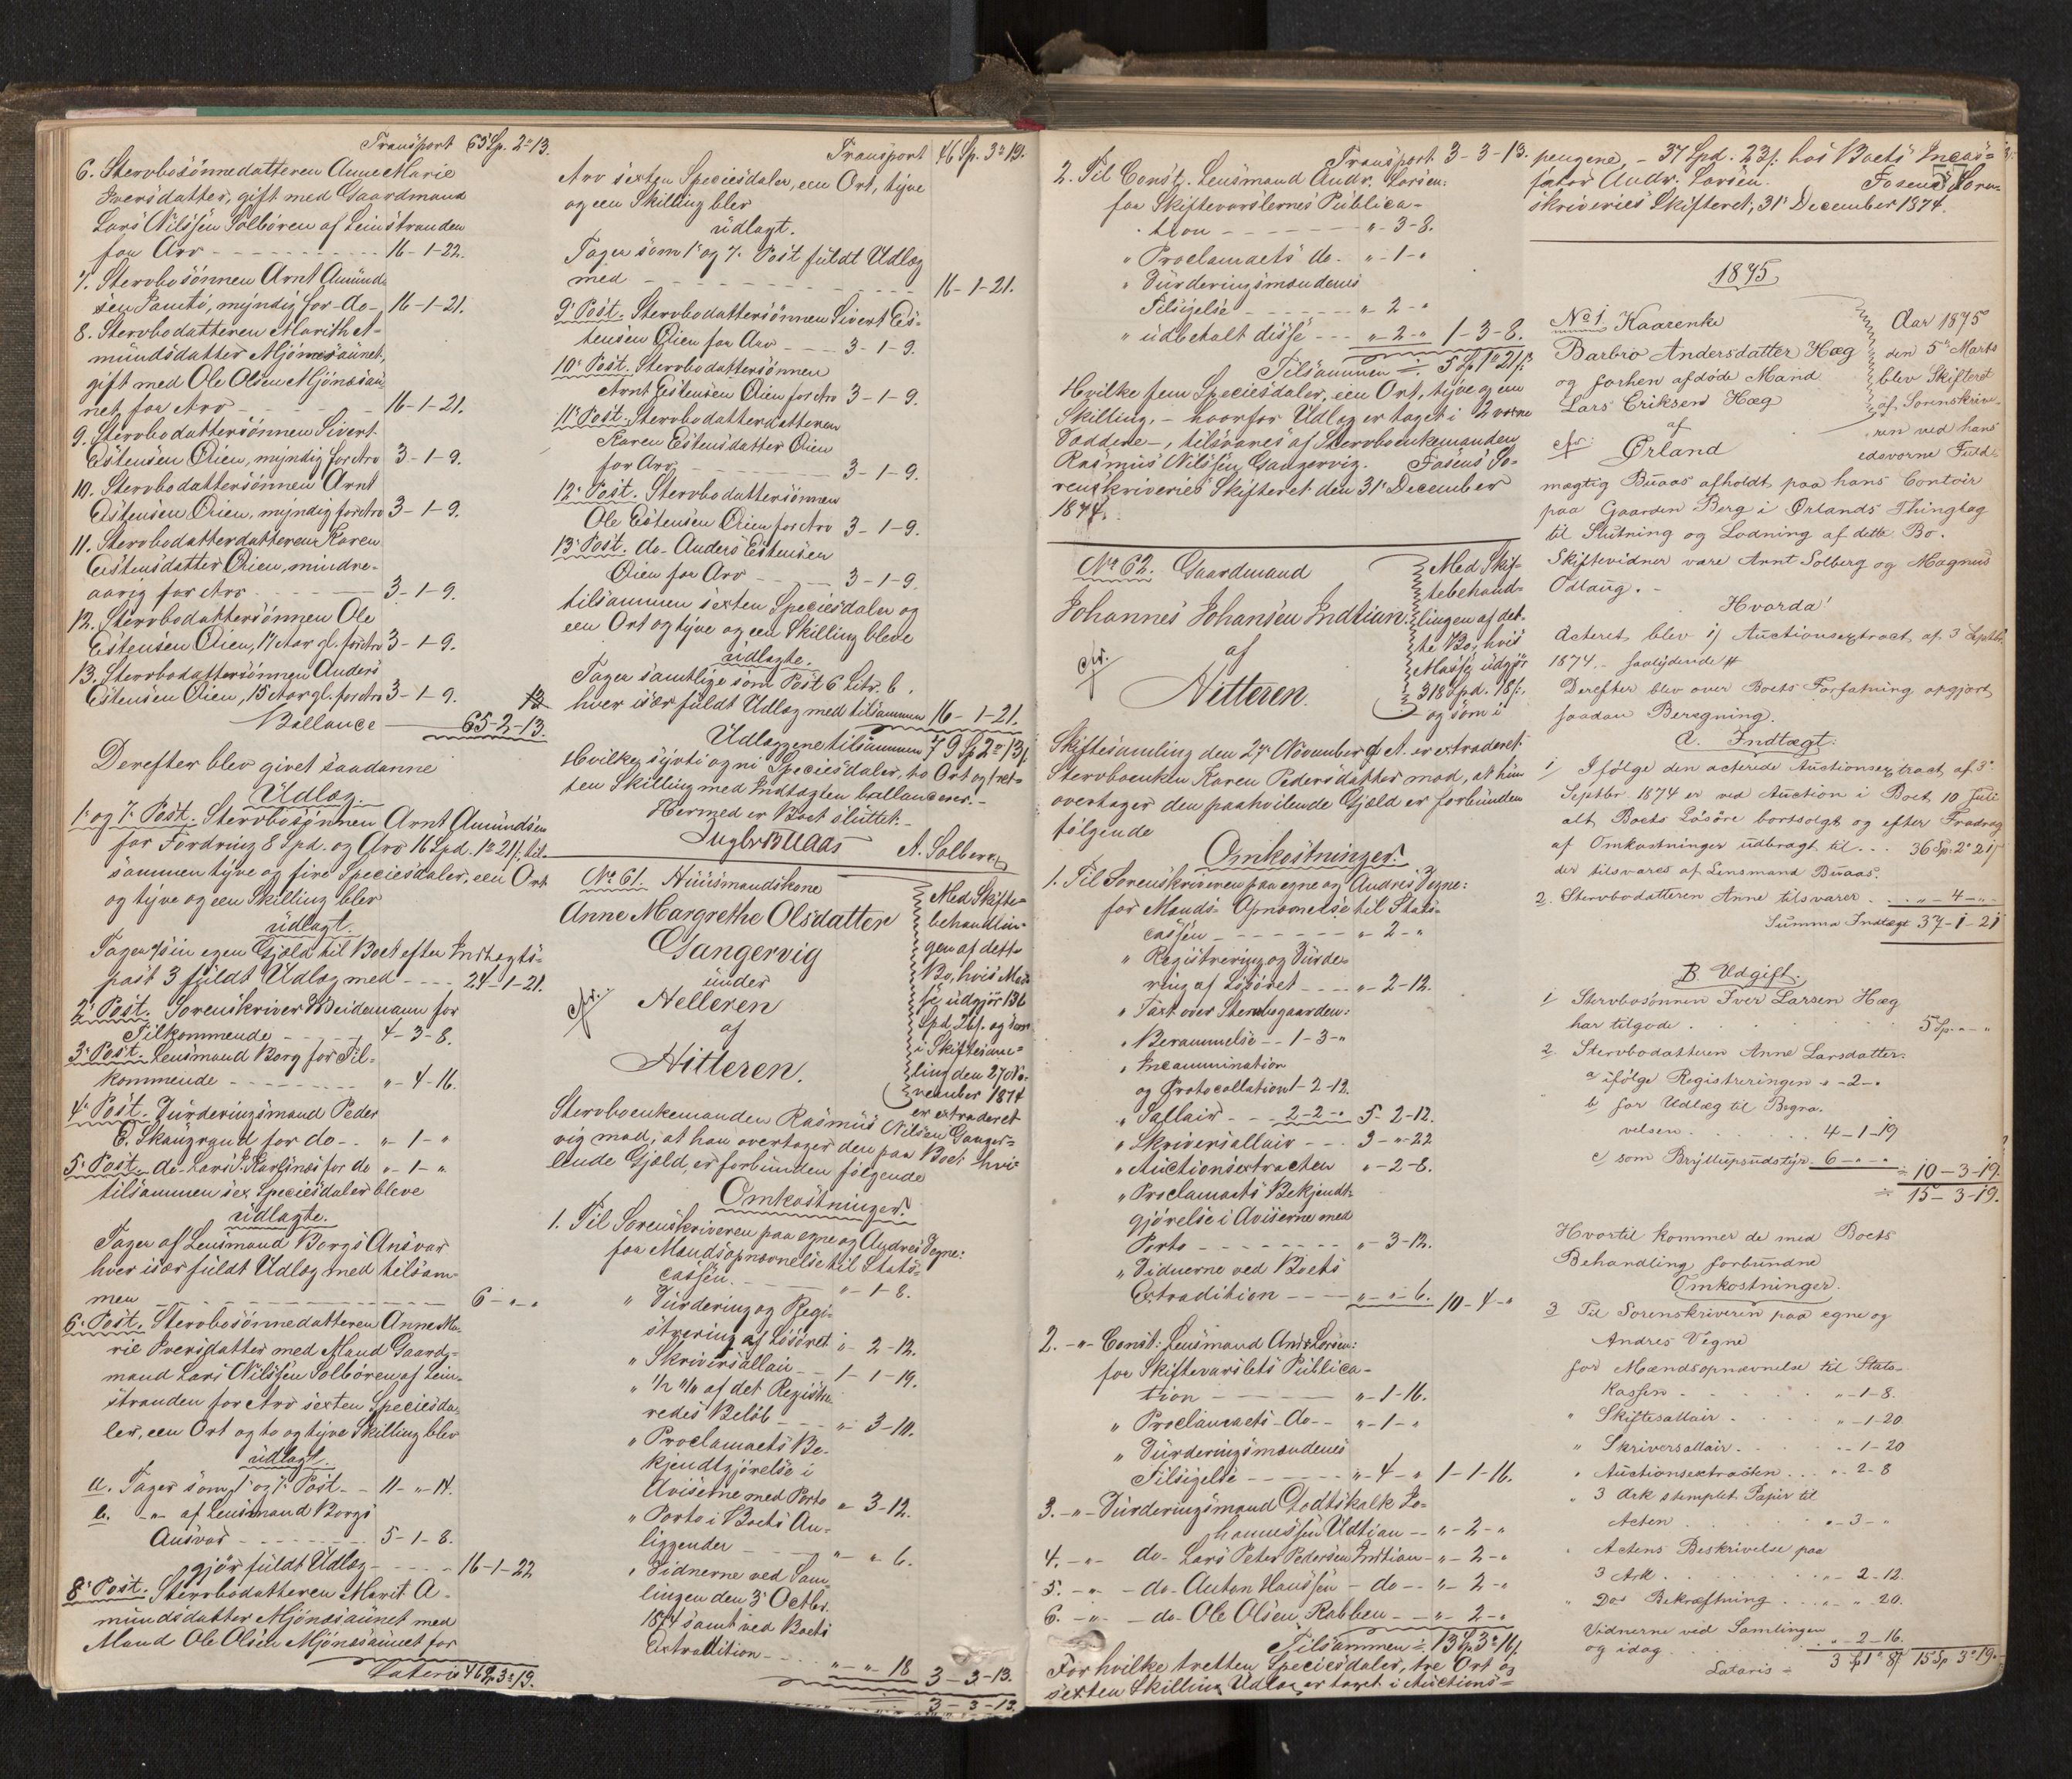 Transport 65 Sp. 2 - 13.
6. Stervbosönnedatteren Anne Marie
Iversdatter, gift med Gaardmand
Lars Nilssen Solbören af Leinstranden
for Arv - 16-1-22.
7. Stervbosönnen Arnt Amund-
sen Samtö, myndig for do - 16-1-21.
8. Stervbodatteren Marith A-
mundsdatter Mjönesaunet,
gift med Ole Olsen Mjönesau
net for Arv - 16-1-21.
9. Stervbodattersönnen Sivert
Estensen Öien, myndig for Arv 3-1-9.
10. Stervbodattersönnen Arnt
Estensen Öien, myndig for Arv 3-1-9.
11. Stervbodatterdatteren Karen
Estensdatter Öien, mindre-
aarig for Arv - 3-1-9.
12. Stervbodattersönnen Ole
Estensen Öien, 17 Aar gl. for Arv 3-1-9.
13. Stervbodattersönnen Anders
Estensen Öien, 15 Aar gl. for Arv 3-1-9.
Ballance 65-2-13.
Derefter blev givet saadanne
Udlæg.
1. og 7. Post. Stervbosönnen Arnt Amundsen
for Fordring 8 Spd. og Arv 16 Spd. 1 21 s, til-
sammen tyve og fire Speciesdaler, een Ort
og tyve og een Skilling blev
udlagt.
Tager i sin egen Gjæld til Boet efter Indtægts-
post 3 fuldt Udlæg med - 24-1-21.
2. Post. Sorenskriver Weidemann for
Tilkommende - 4-3-8.
3. Post. Lensmand Borg for Til-
kommende - „-4-16.
4. Post. Vurderingsmand Peder
E. Skaugrand for do - „-1-„
5. Post. do Lars J. Karlsnes for do „-1-„
tilsammen sex Speciesdaler bleve
udlagte.
Tager af Lensmand Borgs Ansvar
hver især fuldt Udlæg med tilsam-
men - 6-„-„
6. Post. Stervbosönnedatteren Anne Ma-
rie Iversdatter med Mand Gaard-
mand Lars Nilssen Solbören af Lein-
stranden for Arv sexten Speciesda-
ler, een Ort og to og tyve Skilling blev
udlagt.
a. Tager som 1. og 7. Post - 11-„-14.
b. -„- af Lensmand Borgs
Ansvar - 5-1-8.
gjör fuldt Udlæg - 16-1-22
8. Post. Stervbodatteren Marit A-
mundsdatter Mjönesaunet med
Mand Ole Olsen Mjönesaunet for
Lateris 46 Sp. 3 19.
Transport 46 Sp. 3 19.
Arv sexten Speciesdaler, een Ort, tyve
og een Skilling blev
udlagt.
Tager som 1. og 7. Post fuldt Udlæg
med - 16-1-21.
9. Post. Stervbodattersönnen Sivert Es-
tensen Öien for Arv - 3-1-9.
10. Post. Stervbodattersönnen
Arnt Estensen Öien for Arv 3-1-9.
11. Post. Stervbodatterdatteren
Karen Estensdatter Öien
for Arv - 3-1-9.
12. Post. Stervbodattersönnen
Ole Estensen Öien for Arv 3-1-9.
13. Post. do Anders Estensen
Öien for Arv - 3-1-9.
tilsammen sexten Speciesdaler og
een Ort og tyve og een Skilling bleve
udlagte.
Tager samtlige som Post 6 Litr. b.
hver især fuldt Udlæg med tilsammen 16-1-21.
Udlæggene tilsammen 79 Sp 2 13 s
Hvilke sytti og ni Speciesdaler, to Ort og tret-
ten Skilling med Indtægten ballancerer.-
Hermed er Boet sluttet.-
Buaas A. Solberg
No 61. Huusmandskone
Anne Margrethe Olsdatter
Gangervig
under
Helleren
af
Hitteren.
Med Skifte-
behandlin-
gen af dette
Bo, hvis Mas-
se udgjör 136
Spd. 26 s. og som
i Skiftesam-
ling den 27 No-
vember 1874
er extraderet
Stervboenkemanden Rasmus Nilsen Ganger-
vig mod, at han overtager den paa Boet hvi-
lende Gjæld, er forbunden fölgende
Omkostninger.
1. Til Sorenskriveren paa egne og Andres Vegne:
for Mandsopnævnelse til Stats-
cassen. - „-1-8.
„ Vurdering og Regi-
strering af Lösöret „-2-12.
„ Skriversallair - 1-1-19.
„ 1/2 % af det Registre-
redes Belöb - „-3-10.
„ Proclamaets Be-
kjendtgjörelse i
Aviserne med Porto „-3-12.
„ Porto i Boets An-
liggender - „-„-6.
„ Vidnerne ved Sam-
lingen den 3. Octbr.
1874 samt ved Boets
Extradition - „-„-18 3-3-13.
3-3-13.
Transport 3-3-13.
2. Til Const. Lensmand Andr. Larsen:
for Skiftevarslernes Publica-
tion - „-3-8.
„ Proclamaets do - „-1-„
„ Vurderingsmændenes
Tilsigelse - „-2-„
„ udbetalt disse - „-2-„ 1-3-8.
Tilsammen 5 Sp 1 21 s
Hvilke fem Speciesdaler, een Ort, tyve og een
Skilling, - hvorfor Udlæg er taget i 2
-, tilsvares af Stervboenkemanden
Rasmus Nilssen Gangervig. Fosens So-
renskriveries Skifteret den 31. December
1874.
No 62. Gaardmand
Johannes Johansen Indtian
af
Hitteren.
Med Skif-
tebehand-
lingen af det-
te Bo, hvis
Masse udgjör
318 Spd. 18 s.
og som i
Skiftesamling den 27. November d. A. er extraderet
Stervboenken Karen Pedersdatter mod, at hun
overtager den paahvilende Gjæld er forbunden
fölgende
Omkostninger.
1. Til Sorenskriveren paa egne og Andres Vegne:
for Mands Opnævnelse til Stats-
cassen - „-2-„
„ Registrering og Vurde-
ring af Lösöret - „-2-12.
„ Taxt over Stervbogaarden:
„ Berammelse - 1-3-„
„ Incammination
og Protocollation 1-2-12.
„ Sallair - 2-2-„ 5-2-12.
„ Skriversallair - 3-„-22
„ Auctionsextracten „-2-8.
„ Proclamaets Bekjendt-
gjörelse i Aviserne med
Porto - „-3-12.
„ Vidnerne ved Boets
Extradition - „-„-6. 10-4-„
2. -„- Const: Lensmand Andr. Larsen:
for Skiftevarslets Publica-
tion - „-1-16.
„ Proclamaets do - „-1-„
„ Vurderingsmændenes
Tilsigelse - „-4-„ 1-1-16.
3. -„- Vurderingsmand Godtskalk Jo-
hannessen Udtian - „-2-„
4. -„- do - Lars Peter Pedersen Indtian - „-2-„
5. -„- do - Anton Hanssen - do - „-2-„
6. -„- do - Ole Olsen Rabben - „-2-„
Tilsammen 13 Sp 3 16 s
For hvilke tretten Speciesdaler, tre Ort og
sexten Skilling Udlæg er taget i Auctions-
pengene, - 37 Spd. 23 s. hos Boets Incas-
sator Andr. Larsen. Fosens Soren-
skriveries Skifteret, 31. December 1874.
1875
No 1 Kaarenke
Barbro Andersdatter Hæg
og forhen afdöde Mand
Lars Eriksen Hæg
af
Ørland
Aar 1875
den 5te Marts
blev Skifteret
af Sorenskrive-
ren ved hans
edsvorne Fuld-
mægtig Buaas afholdt paa hans Contoir
paa Gaarden Berg i Ørlands Thinglag
til Slutning og Lodning af dette Bo.
Skiftevidner vare Arnt Solberg og Magnus
Odlaug. -
Hvorda'
Acteret blev 1/ Auctionsextract af 3 Septbr
1874. - saalydende #
Derefter blev over Boets Forfatning opgjort
saadan Beregning.
A. Indtægt:
1/ Ifölge den acterede Auctionsextract af 3.
Septbr 1874 er ved Auction i Boet 10 Juli
alt Boets Lösöre bortsolgt og efter Fradrag
af Omkostninger udbragt til ... 36 Sp 2 21 s
der tilsvares af Lensmand Buaas.
2. Stervbodatteren Anne tilsvarer .. „-4-„
Summa Indtægt 37-1-21
B. Udgift:
1 Stervbosönnen Iver Larsen Hæg
har tilgode . . . 5 Sp. „-„
2 Stervbodatteren Anne Larsdatter.
a ifölge Registreringen „-2-„
b for Udlæg til Begra-
velsen . . . 4-1-19
c/ som Bryllupsudstyr 6-„-„ 10-3-19.
15-3-19.
Hvortil kommer de med Boets
Behandling forbundne
Omkostninger.
3 Til Sorenskriveren paa egne og
Andres Vegne
for Mændsopnævnelse til Stats-
Kassen . . . „-1-8.
„ Skiftesallair . . . „-1-20
„ Skriversallair . . . „-1-20
„ Auctionsextracten . . . „-2-8
„ 3 Ark stemplet Papir til
Acten . . . „-3-„
„ Actens Beskrivelse paa
3 Ark . . . „-2-12.
„ Dos Bekræftning . . . „-„-20.
Vidnerne ved Samlingen
og idag . . . „-2-16.
Lataris 3 Sp 1 8 s 15 Sp 3 19.